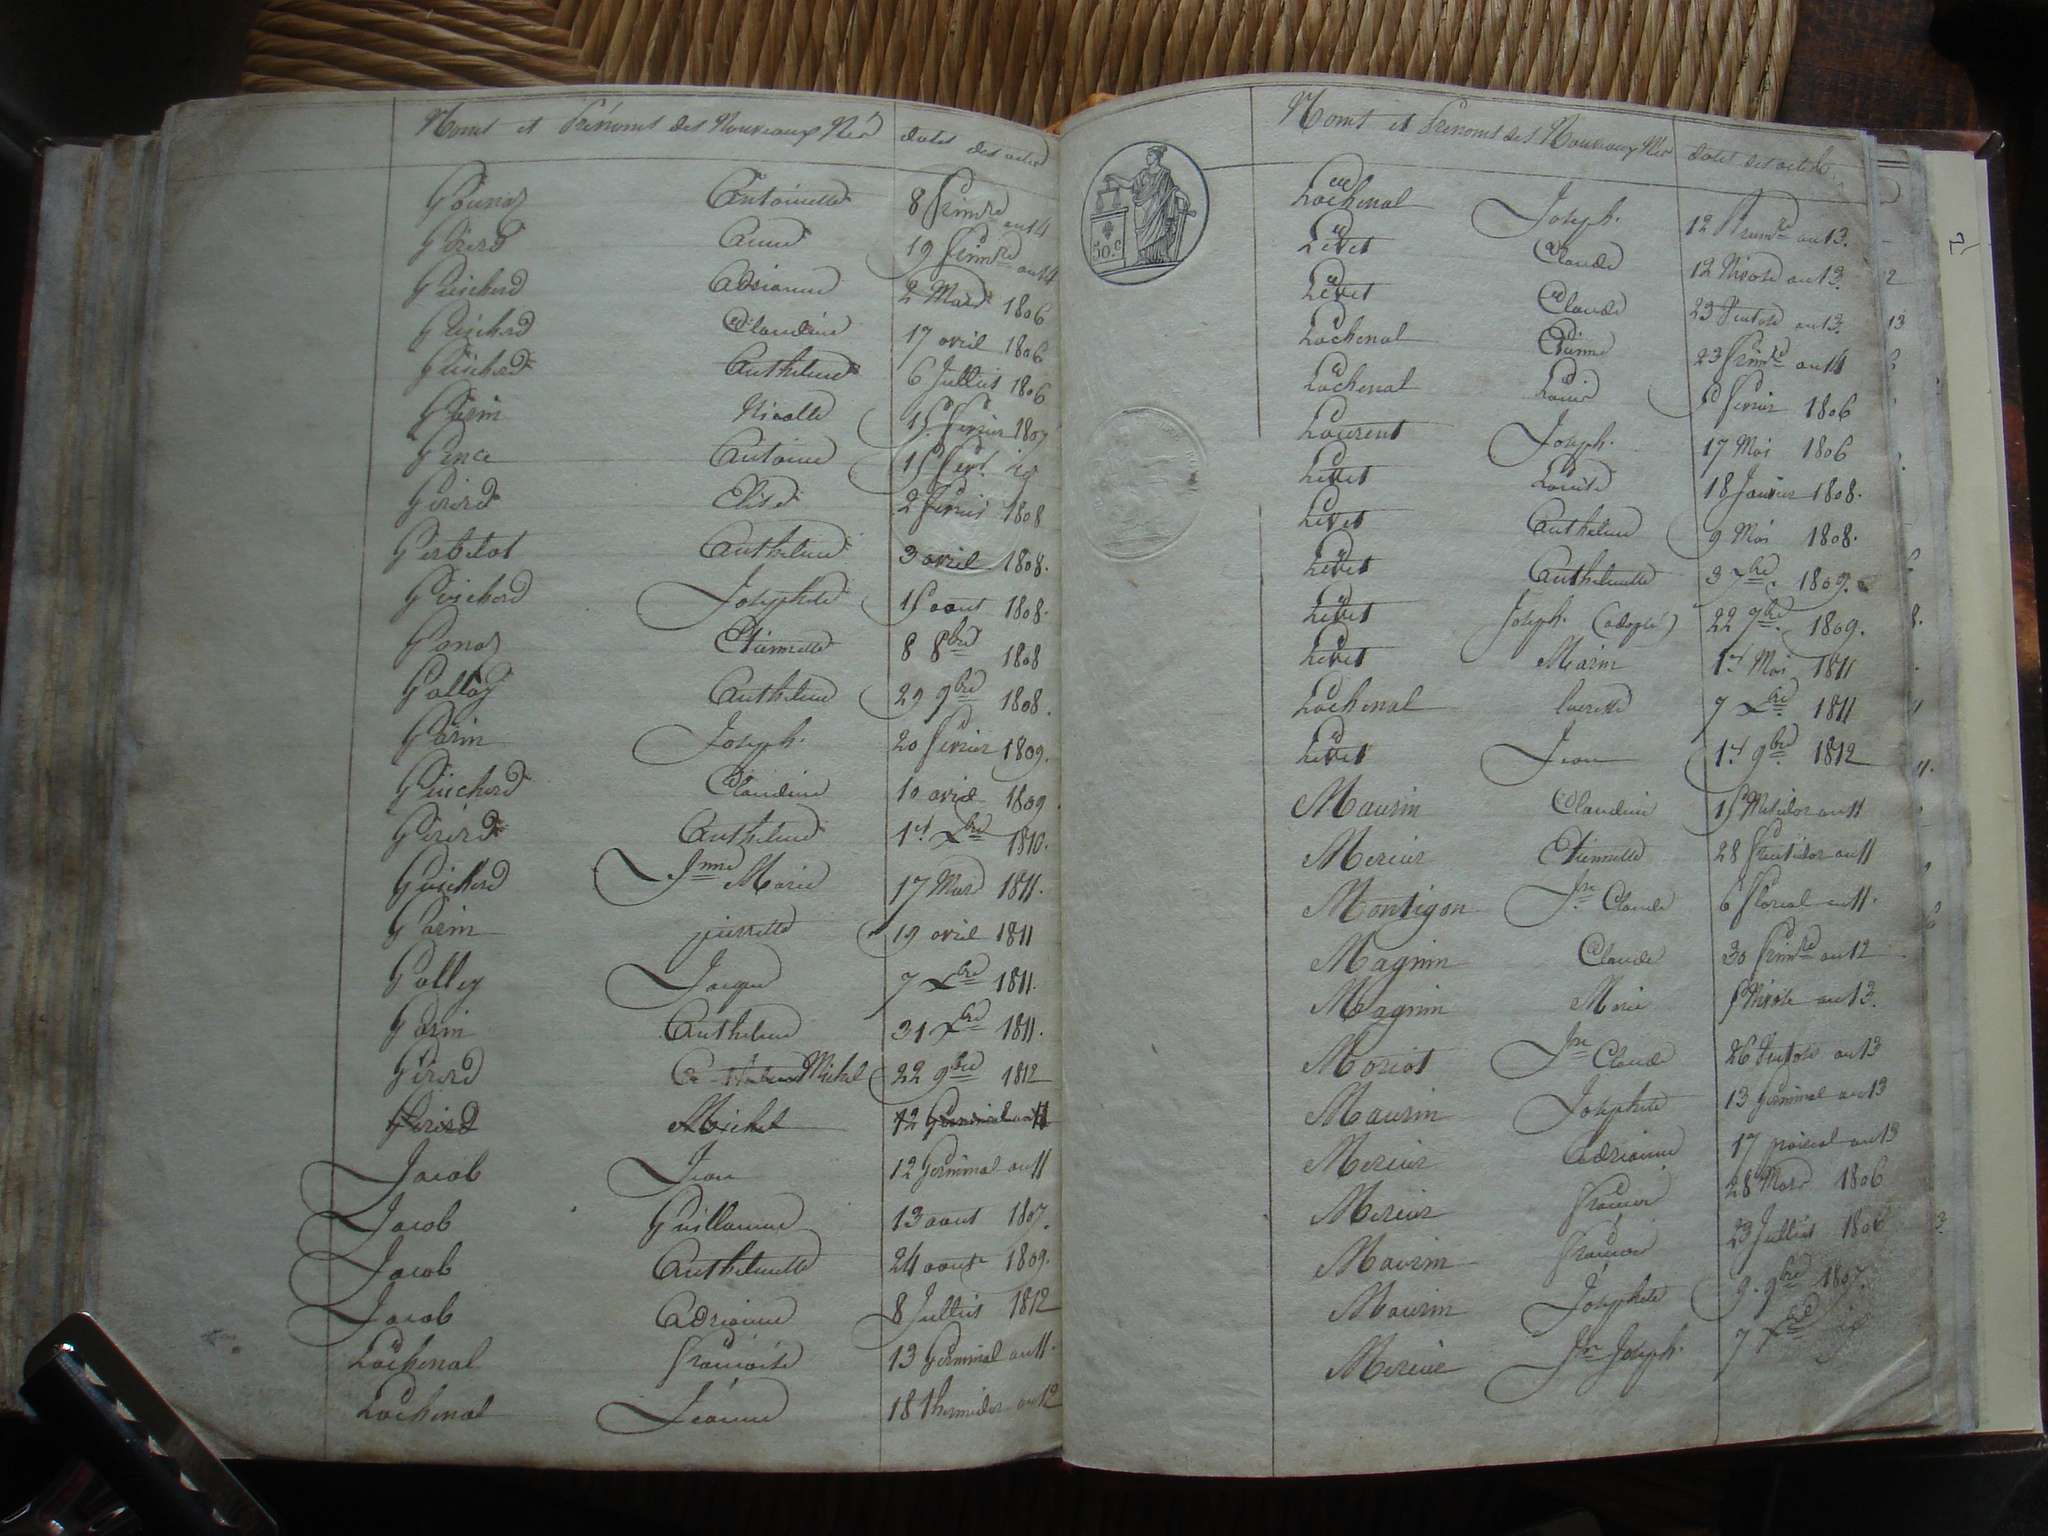 Noms et Prénoms des Nouveaux Nés dates des actes
Gounoz Antoinette 8 frimre an 14
Gérerd Anne 19 frimre an 14
Guicherd Adrianne 2 Mars 1806
Guicherd Claudine 17 avril 1806
Guicherd Anthelme 6 Juillet 1806
Garin Nicolle 15 fevrier 1807
Antoine
Gererd Elise 2 fevrier 1808
Gerbelot Anthelme 3 avril 1808.
Guicherd Josephte 15 aout 1808.
Gonoz Etiennette 8 8bre 1808
Galley Anthelme 29 9bre 1808.
Garin Joseph. 20 fevrier 1809.
Guicherd Claudine 10 avril 1809
Gererd Anthelme 1er Xbre 1810.
Guicherd Jnne Marie 17 Mars 1811.
Garin pierrette 19 avril 1811
Galley Jaque 7 Xbre 1811.
Garin Anthelme 31 Xbre 1811.
Gererd Michel 22 9bre 1812
Gererd Michel 12 Germinal an 11
Jacob Jean 12 Germinal an 11
Jacob Guillaume 13 aout 1807.
Jacob Anthelmette 24 aout 1809.
Jacob Adrianne 8 Juillet 1812
Lachenal francoise 13 Germinal an 11.
Lachenal Jeanne 18 thermidor an 12
50.c
Noms et Prenoms des Nouveaux Nés dates des actes.
Lachenal Joseph. 12 an 13.
Levet Claude 12 Nivose an 13.
Levet Claude 23 Ventose an 13.
Lachenal 23 frimre an 14
Lachenal Louis fevrier 1806
Laurent Joseph. 17 Mai 1806
Levet Louise 18 Janvier 1808.
Levet Anthelme 9 Mai 1808.
Levet Anthelmette 3 7bre 1809.
Levet Joseph. (adopté) 22 7bre 1809.
Levet Marin 1er Mai 1811
Lachenal 7 Xbre 1811
Levet Jean 1er 9bre 1812
Maurin Claudine 15 Messidor an 11
Mercier Etiennette 28 fructidor an 11
Montigon Jn Claude 6 floreal an 11.
Magnin Claude 30 frimre an 12
Magnin Marie Nivose an 13.
Moriot Jn Claude 26 Ventose an 13
Maurin Josephte 13 Germinal an 13
Mercier Adrianne 17 prairial an 13
Mercier 28 Mars 1806
Maurin 23 Juillet 1806
Maurin Josephte 9. 9bre 1807.
Mercier Jn Joseph. 7 Xbre